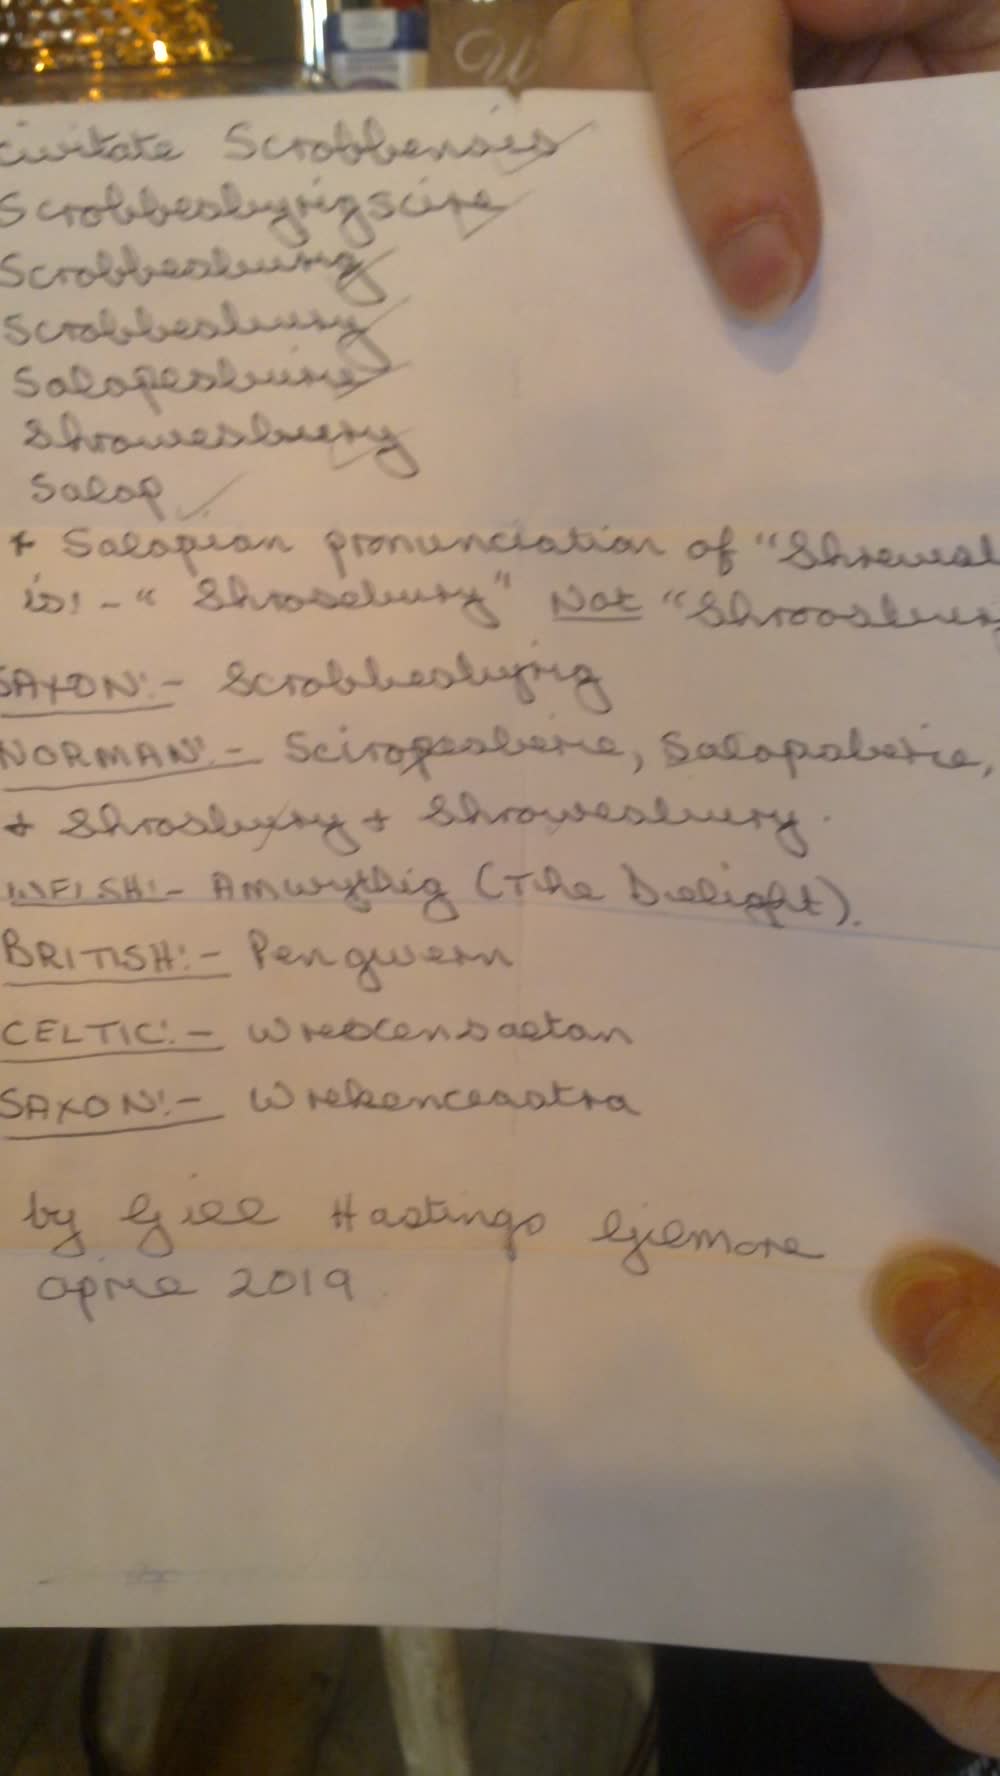 civitate Scrobbensis
Scrobbesbyrigscire
Scrobbesburg
Scrobbesbury
Salopesburie
Shrowesbury
Salop
+ Salopian pronunciation of "Shrewsb
is:- "Shrosebury" Not "Shroosbury
SAXON:- Scrobbesbyrig
NORMAN:- Sciropesberie, Salopsberie,
+ Shrosbury + Shrowesbury.
WELSH:- Amwythig (The Delight).
BRITISH:- Pengwern
CELTIC:- Wreocensaetan
SAXON:- Wrekenceastra
by Gill Hastings Gilmore
April 2019